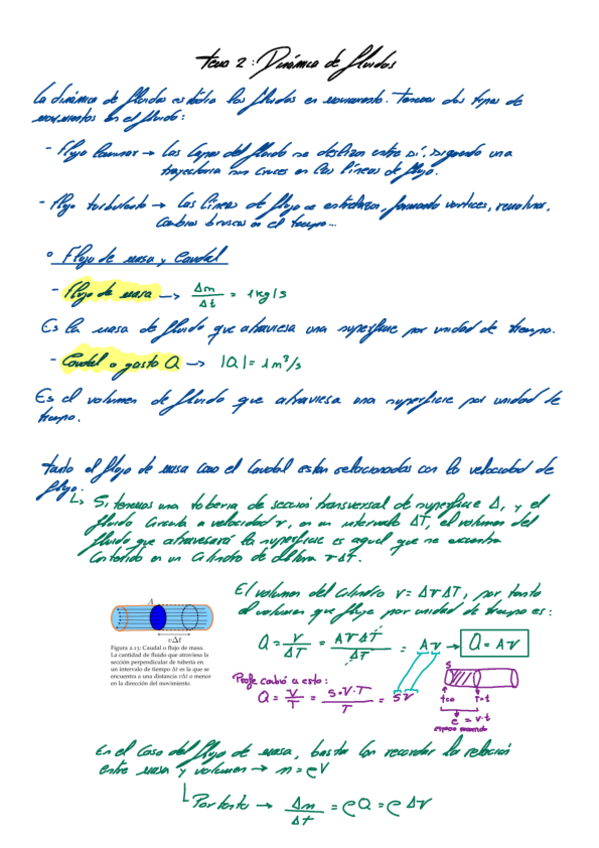 Tema 2: Dinámica de fluidos
La dinámica de fluidos estudia los fluidos en movimiento. Tenemos dos tipos de
movimientos en el fluido:
- Flujo laminar → Las capas del fluido se deslizan entre sí, siguiendo una
trayectoria sin cruces en las líneas de flujo.
- Flujo turbulento → Las líneas de flujo se entrelazan, formando vórtices, remolinos,
cambios bruscos en el tiempo...
° Flujo de masa y Caudal
- Flujo de masa → Δm/Δt = 1kg/s
Es la masa de fluido que atraviesa una superficie por unidad de tiempo.
- Caudal o gasto Q → |Q| = 1m³/s
Es el volumen de fluido que atraviesa una superficie por unidad de
tiempo.
Tanto el flujo de masa como el caudal están relacionados con la velocidad de
flujo.
↳ Si tenemos una tubería de sección transversal de superficie A, y el
fluido circula a velocidad v, en un intervalo ΔT, el volumen del
fluido que atravesará la superficie es aquel que se encuentra
contenido en un cilindro de altura vΔT.
El volumen del cilindro V = AvΔT, por tanto
el volumen que fluye por unidad de tiempo es:
A
vΔt
Figura 2.13: Caudal o flujo de masa.
La cantidad de fluido que atraviesa la
sección perpendicular de tubería en
un intervalo de tiempo Δt es la que se
encuentra a una distancia vΔt o menor
en la dirección del movimiento.
Q = V/ΔT = AvΔT/ΔT = Av → Q = Av
Profe cambió a esto:
Q = V/T = S·V·T/T = Sv
S
t=0 T=t
e = v·t
espacio recorrido
En el caso del flujo de masa, basta con recordar la relación
entre masa y volumen → m = ρV
↳ Por tanto → Δm/Δt = ρQ = ρAv